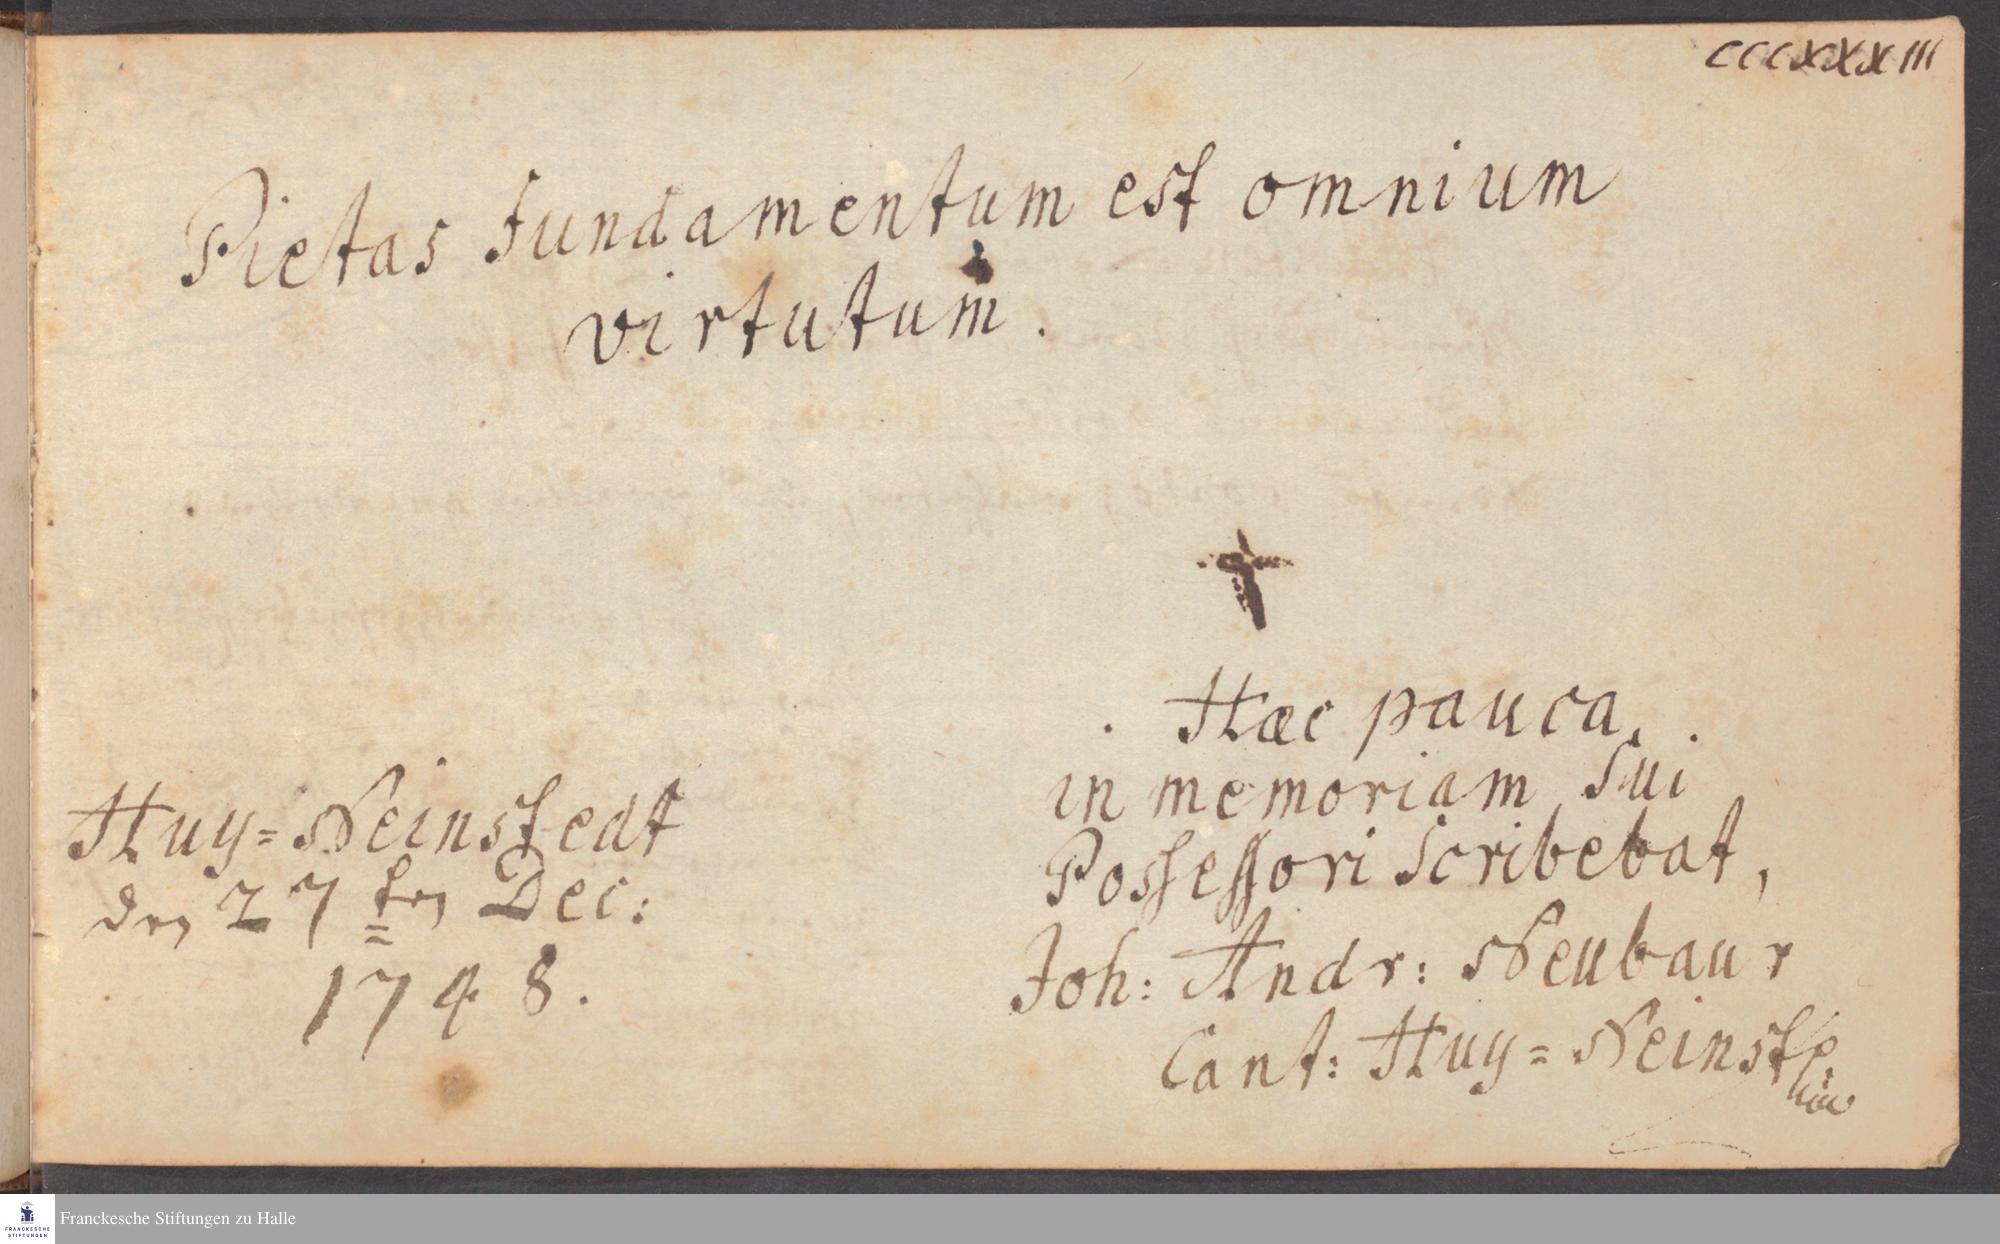 CCCXXXIII
Pietas Fundamentum est omnium
virtutum.
Hæc pauca
in memoriam Sui
Possessori Scribebat,
Joh: Andr: Neubaur
Cant: Huy=Neinste
Huy=Neinstedt
den 27 ten Dec:
1748.
FRANCKESCHE
STIFTUNGEN
Franckesche Stiftungen zu Halle